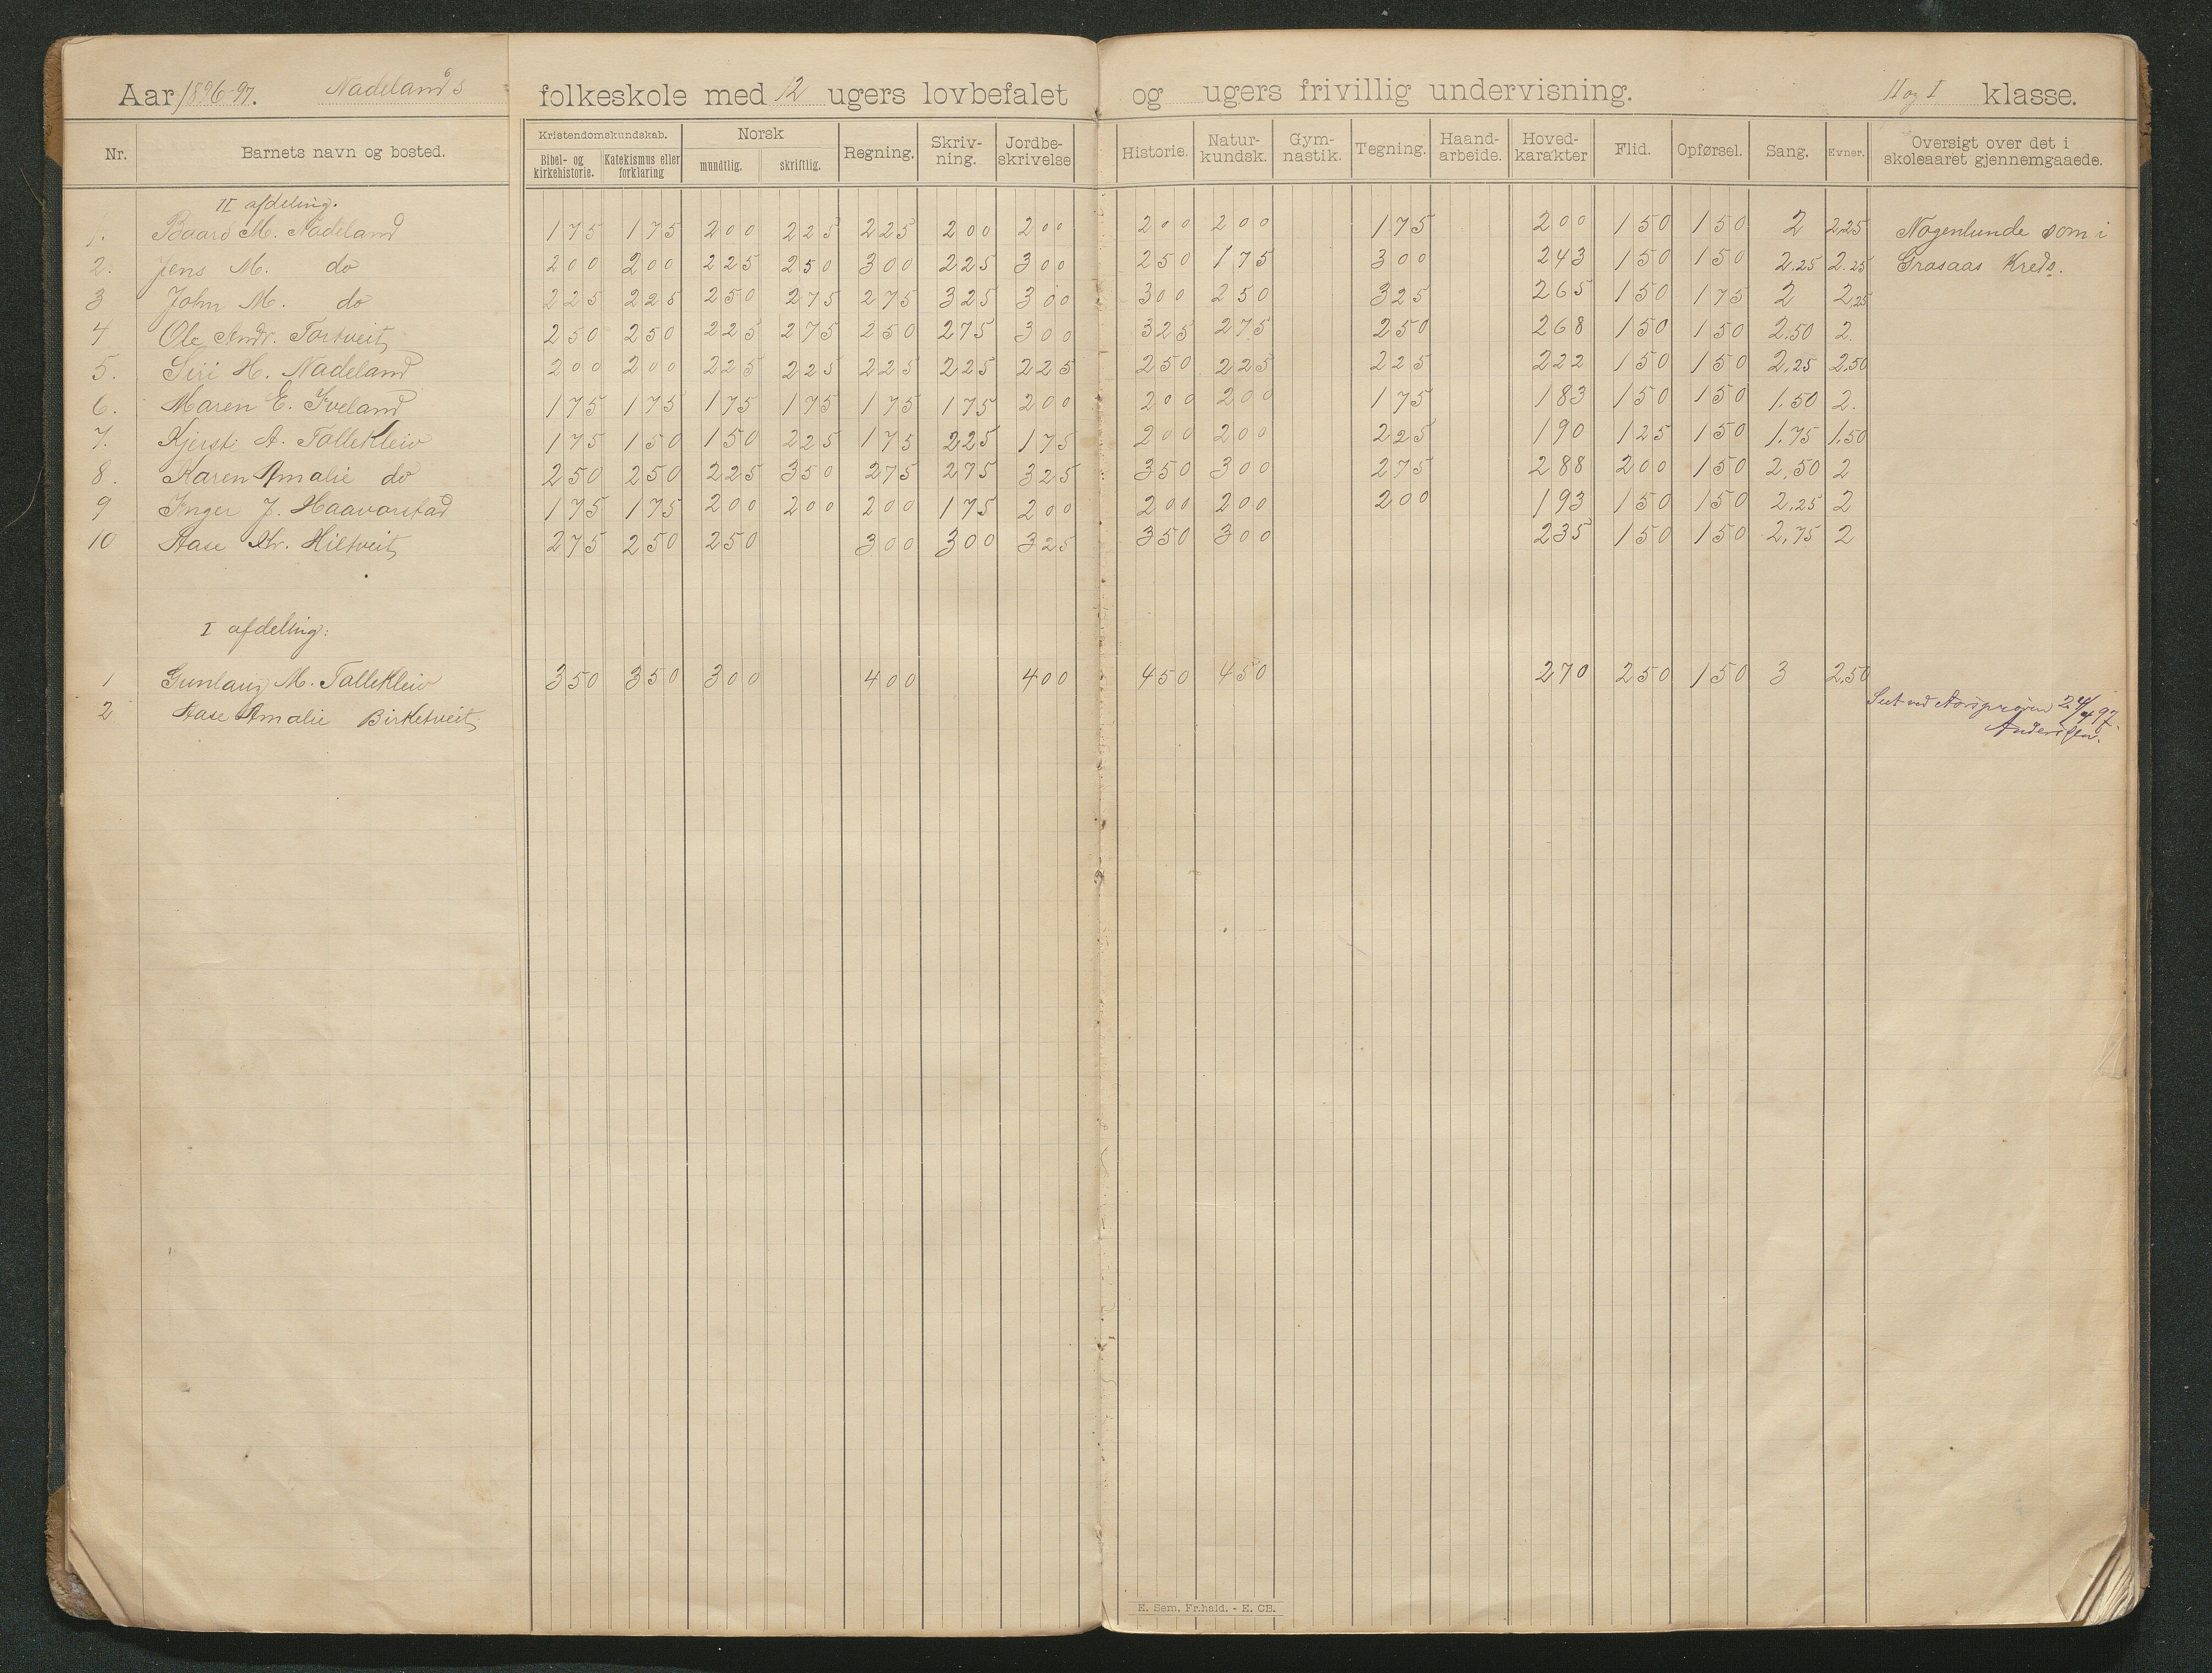 Aar 1896-97. Nadelands folkeskole med 12 ugers lovbefalet og ugers frivillig undervisning. II og I klasse.
Nr. Barnets navn og bosted. Kristendomskundskab. Bibel- og kirkehistorie. Katekismus eller forklaring Norsk mundtlig. skriftlig. Regning. Skriv-ning. Jordbe-skrivelse Historie. Natur-kundsk. Gym-nastik. Tegning. Haand-arbeide. Hoved-karakter Flid. Opførsel. Sang. Evner. Oversigt over det i skoleaaret gjennemgaaede.
II afdeling.
1. Baard M. Nadeland 175 175 200 225 225 200 200 200 200 175 200 150 150 2 2.25 Nogenlunde som i
2. Jens M. do 200 200 225 250 300 225 300 250 175 300 243 150 150 2.25 2.25 Grasaas Kreds.
3 John M. do 225 225 250 275 275 325 300 300 250 325 265 150 175 2 2.25
4 Ole Andr. Tortveit 250 250 225 275 250 275 300 325 275 250 268 150 150 2.50 2.
5. Siri H. Nadeland 200 200 225 225 225 225 225 250 225 225 222 150 150 2.25 2.50
6. Maren E. Iveland 175 175 175 175 175 175 200 200 200 175 183 150 150 1.50 2.
7. Kjersti A. Tallekleiv 175 150 150 225 175 225 175 200 200 225 190 125 150 1.75 1.50
8. Karen Amalie do 250 250 225 350 275 275 325 350 300 275 288 200 150 2.50 2
9 Inger J. Haavorstad 175 175 200 200 200 175 200 200 200 200 193 150 150 2.25 2
10 Aase Kr. Hiltveit 275 250 250 300 300 325 350 300 235 150 150 2.75 2
I afdeling:
1 Gunlaug M. Tallekleiv 350 350 300 400 400 450 450 270 250 150 3 2.50
2 Aase Amalie Birketveit
Seet ved Aarsprøven 24/4 97.
Anderssen.
E. Sem, Fr.hald. - E. CB.